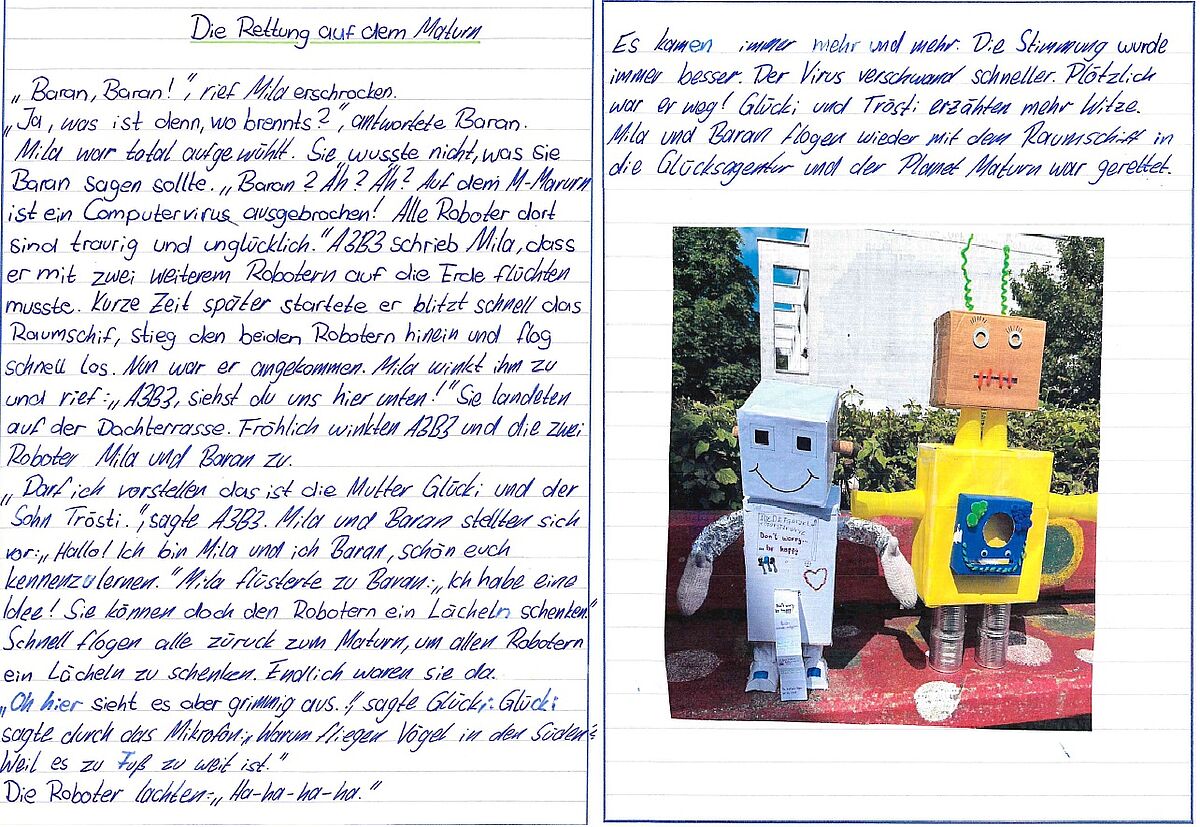 Die Rettung auf dem Maturn
„Baran, Baran!", rief Mila erschrocken.
„Ja, was ist denn, wo brennts?", antwortete Baran.
Mila war total aufgewühlt. Sie wusste nicht, was sie
Baran sagen sollte. „Baran? Äh? Äh? Auf dem M-Marurn
ist ein Computervirus ausgebrochen! Alle Roboter dort
sind traurig und unglücklich." A3B3 schrieb Mila, dass
er mit zwei weiterem Robotern auf die Erde flüchten
musste. Kurze Zeit später startete er blitzt schnell das
Raumschif, stieg den beiden Robotern hinein und flog
schnell los. Nun war er angekommen. Mila winkt ihm zu
und rief: „A3B3, siehst du uns hier unten!" Sie landeten
auf der Dachterrasse. Fröhlich winkten A3B3 und die zwei
Roboter Mila und Baran zu.
„Darf ich vorstellen das ist die Mutter Glücki und der
Sohn Trösti.", sagte A3B3. Mila und Baran stellten sich
vor: „Hallo! Ich bin Mila und ich Baran, schön euch
kennenzulernen." Mila flüsterte zu Baran: „Ich habe eine
Idee! Sie können doch den Robotern ein Lächeln schenken."
Schnell flogen alle züruck zum Maturn, um allen Robotern
ein Lächeln zu schenken. Endlich waren sie da.
„Oh hier sieht es aber grimmig aus.", sagte Glücki. Glücki
sagte durch das Mikrofon: „Warum fliegen Vögel in den Süden?
Weil es zu Fuß zu weit ist."
Die Roboter lachten: „Ha-ha-ha-ha."
Es kamen immer mehr und mehr. Die Stimmung wurde
immer besser. Der Virus verschwand schneller. Plötzlich
war er weg! Glücki und Trösti erzähten mehr Witze.
Mila und Baran flogen wieder mit dem Raumschiff in
die Glücksagentur und der Planet Maturn war gerettet.
Don't worry...
be happy